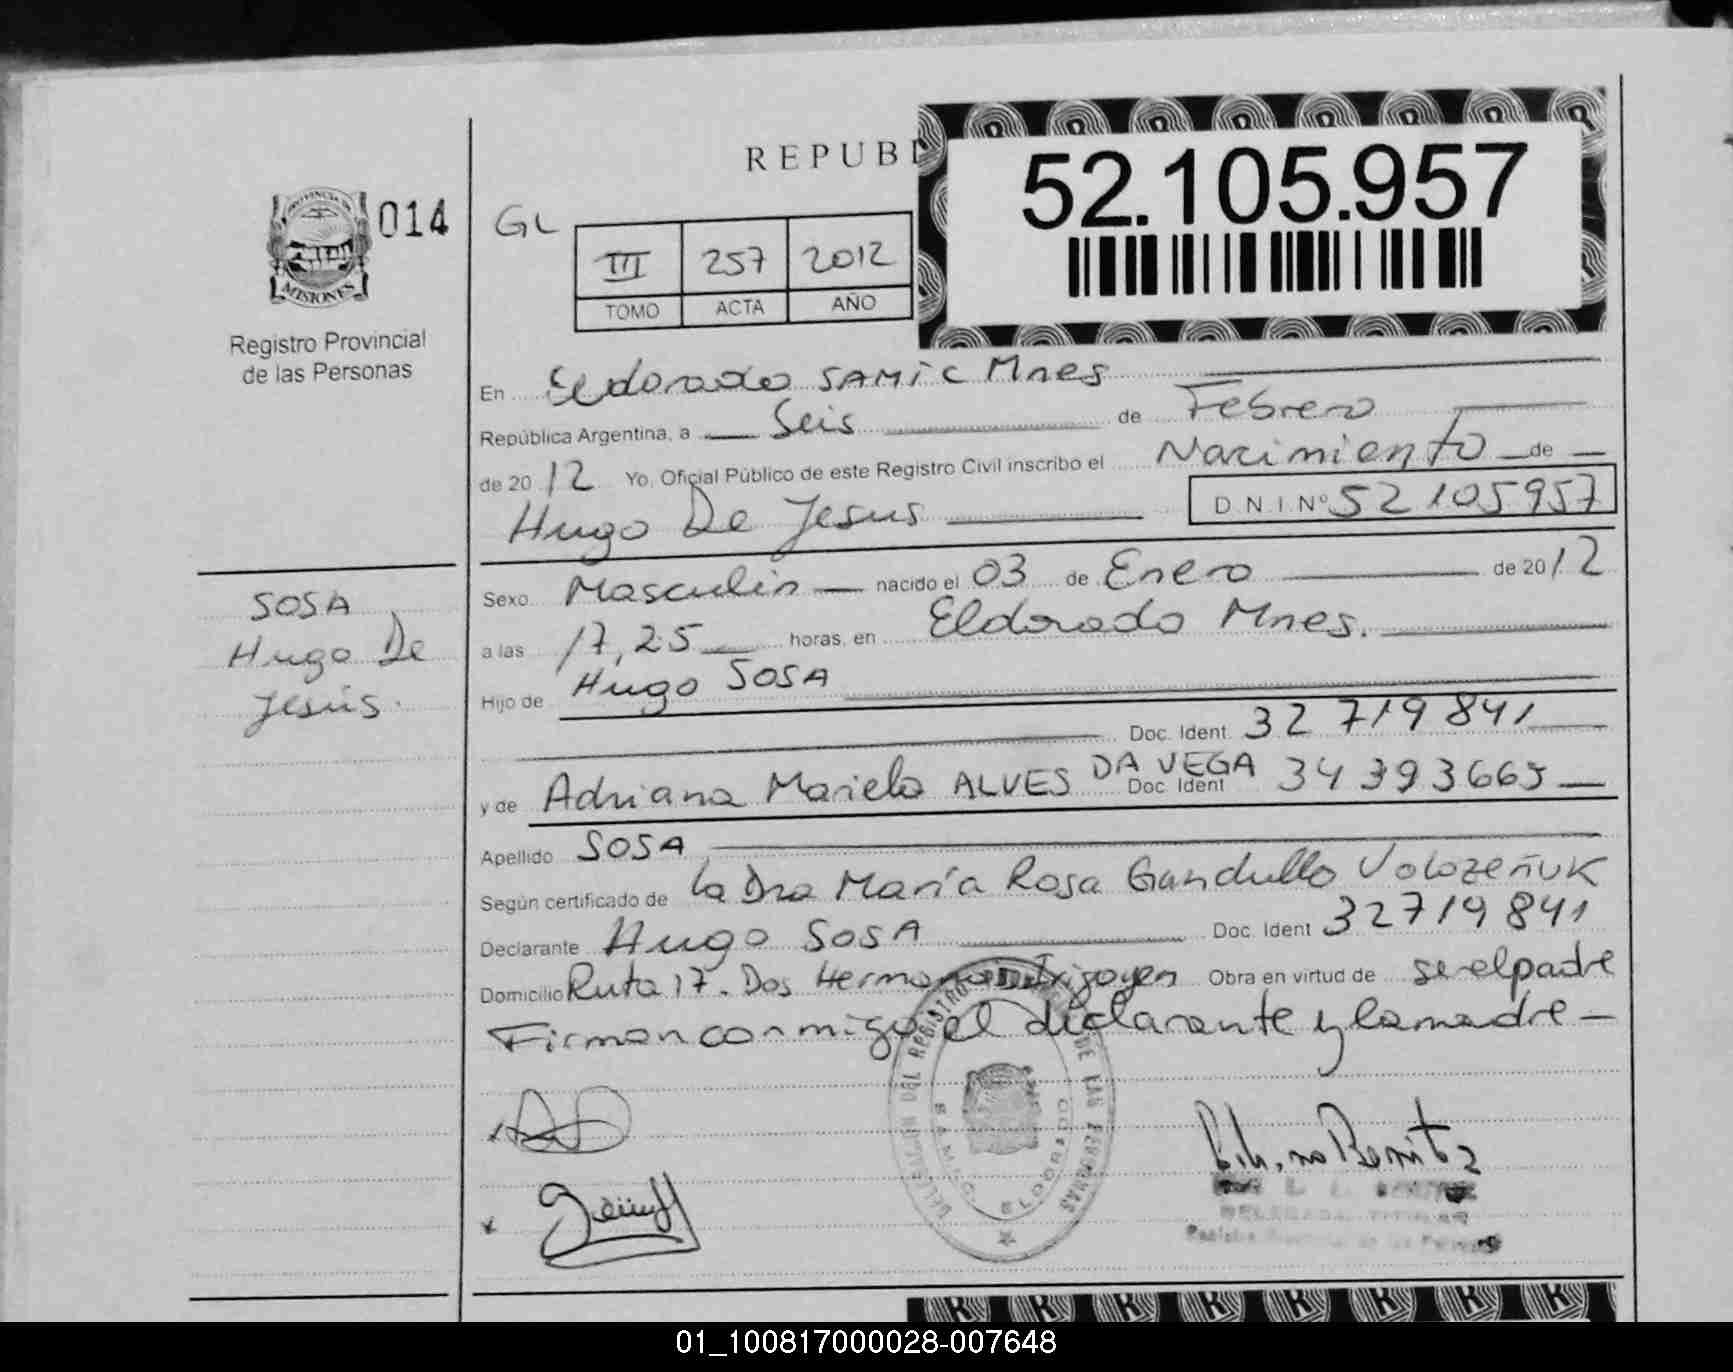 REPUBL
52.105.957
PROVINCIA DE
MISIONES
014
GL
III 257 2012
TOMO ACTA AÑO
Registro Provincial
de las Personas
En Eldorado SAMIC Mnes
República Argentina, a Seis de Febrero
de 2012 Yo, Oficial Público de este Registro Civil inscribo el Nacimiento de
Hugo De Jesus D.N.I.Nº 52 105957
SOSA
Hugo De
Jesús.
Sexo Masculin nacido el 03 de Enero de 2012
a las 17,25 horas, en Eldorado Mnes.
Hijo de Hugo SOSA
Doc. Ident. 32 719 841
y de Adriana Mariela ALVES DA VEGA Doc. Ident 34 393665
Apellido SOSA
Según certificado de la Dra María Rosa Gandullo Volozeñuk
Declarante Hugo SOSA Doc. Ident 32719841
Domicilio Ruta 17. Dos Hermanas Irigoyen Obra en virtud de se el padre
Firman conmigo el declarante y la madre
DELEGACION DEL REGISTRO DE LAS PERSONAS
Benitez
DELEGADA TITULAR
01_100817000028-007648